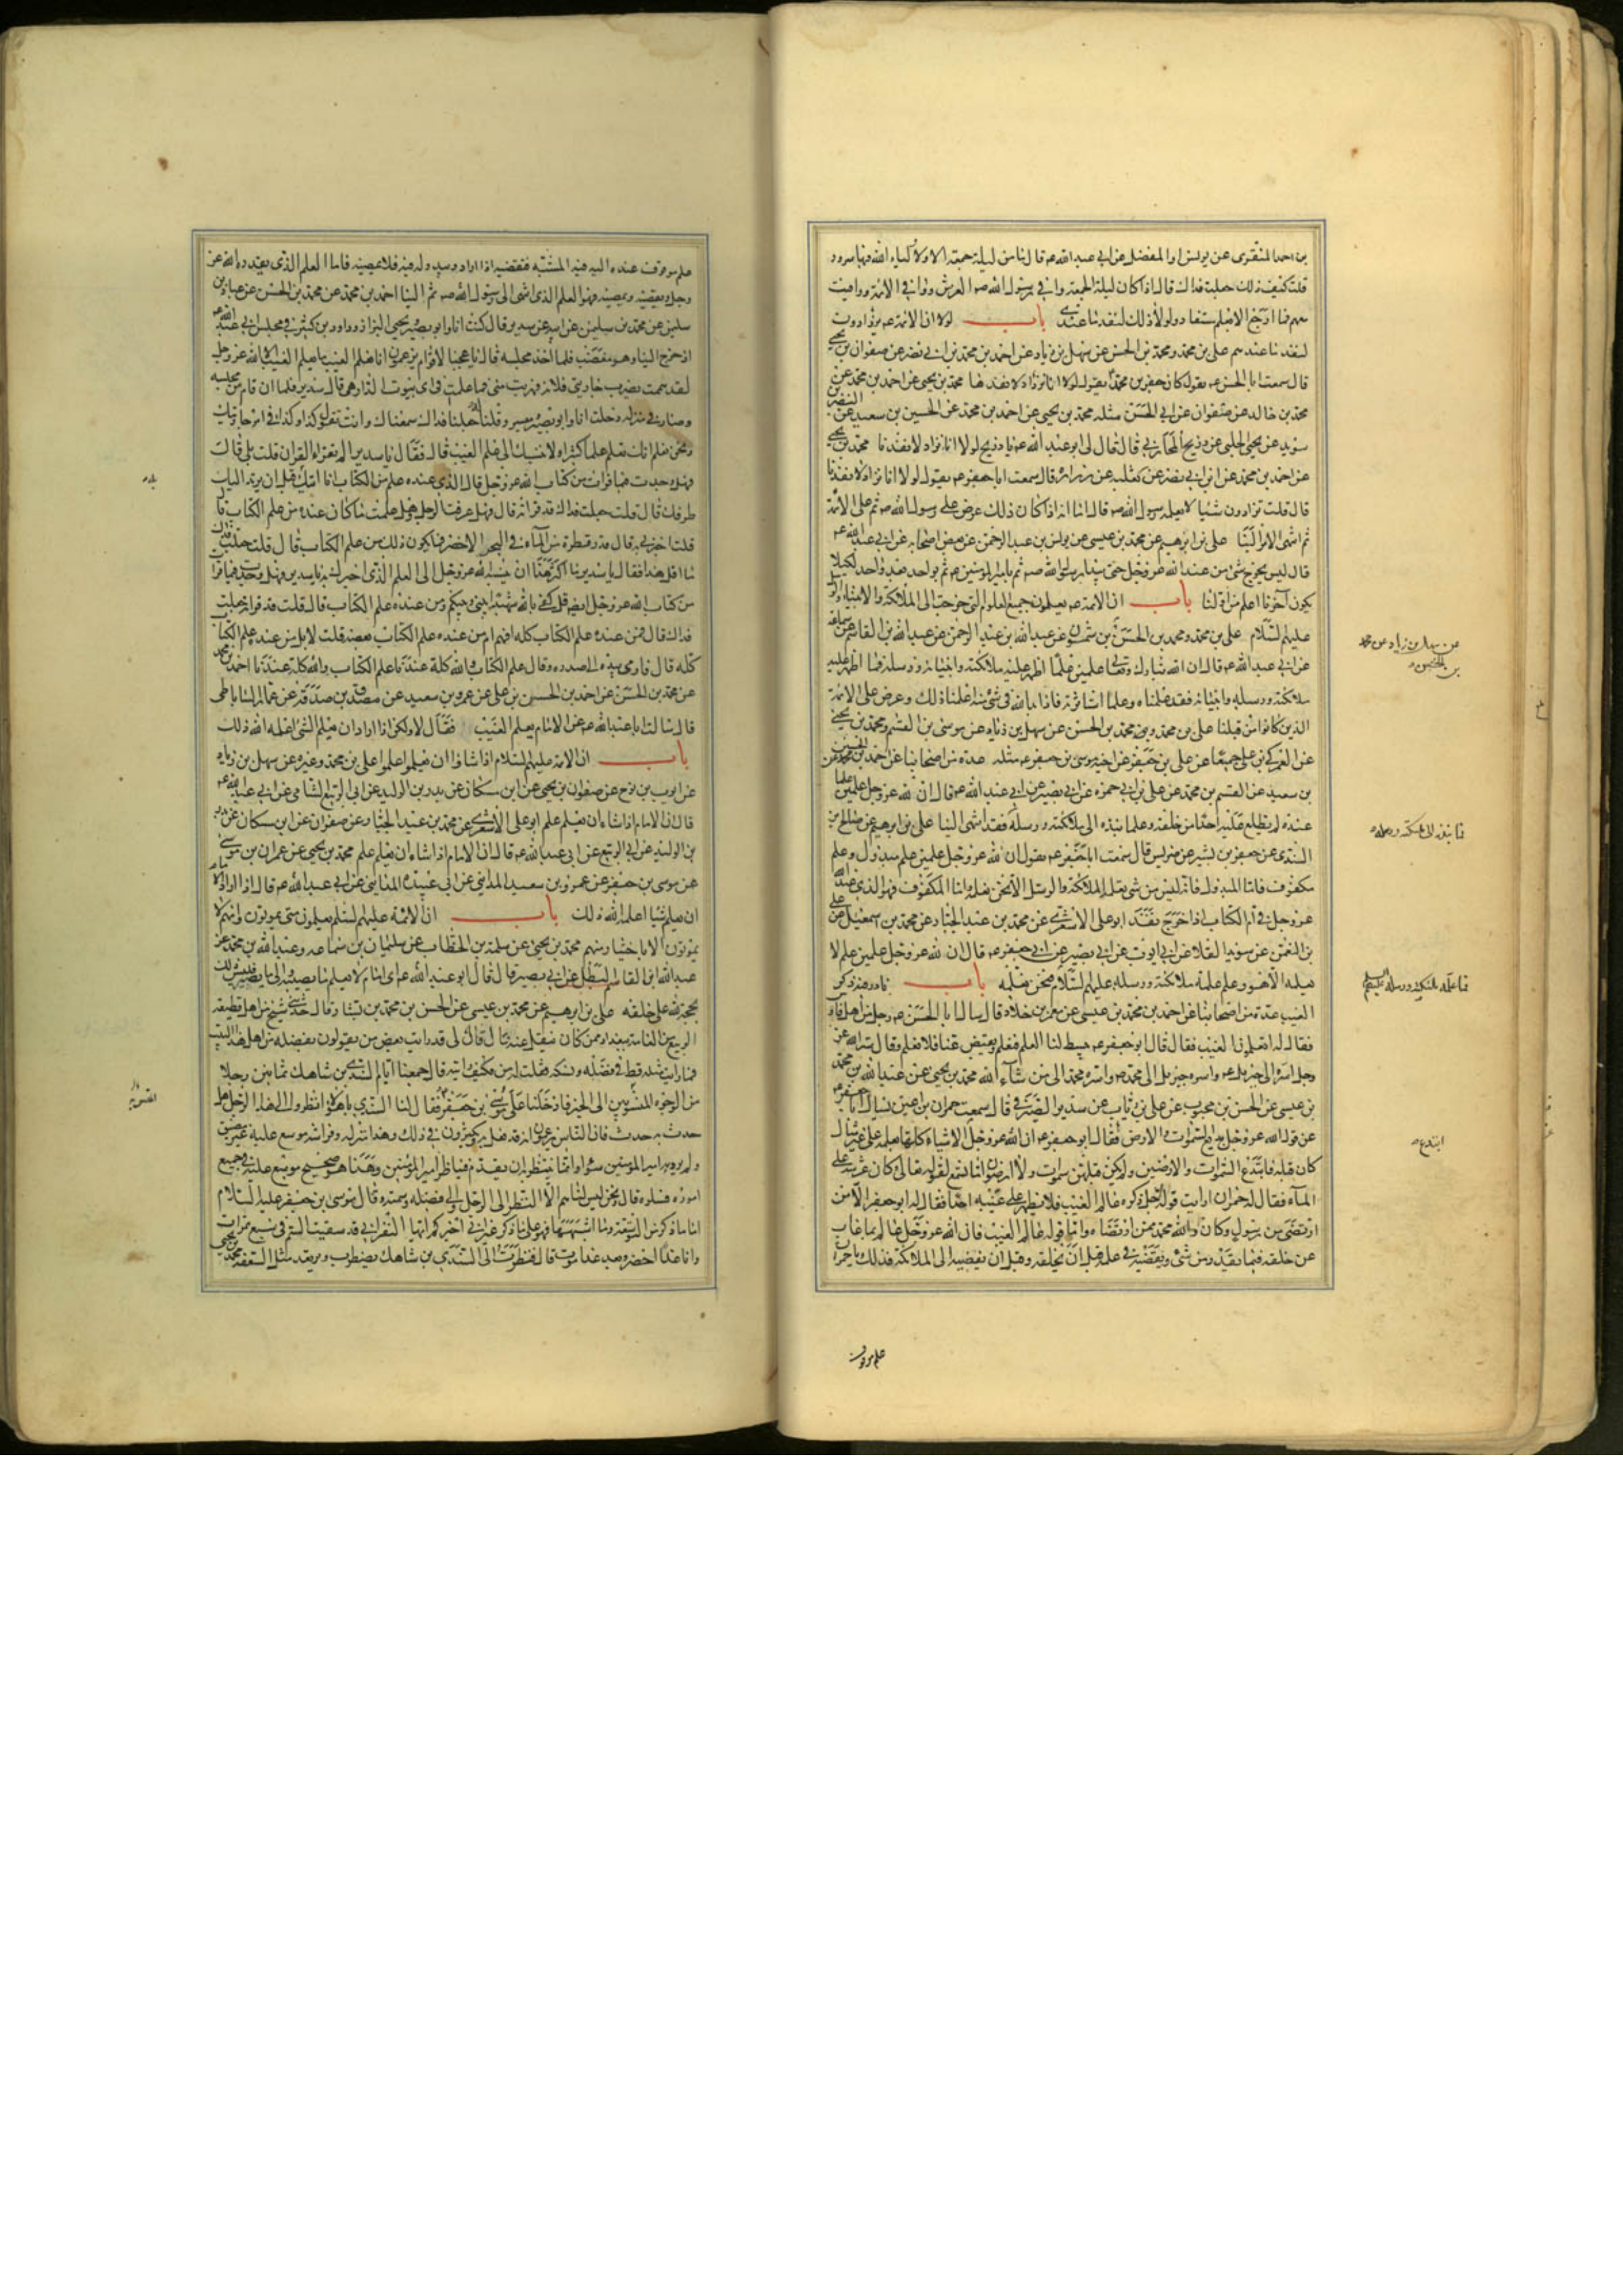 بن احمد المنقرى عن يونس او المفضل عن ابى عبد الله عم قال ما من ليلة جمعة الا ولاولياء الله فيها سرور
قلت كيف ذلك جعلت فداك قال اذا كان ليلة الجمعة وافى رسول الله صم العرش ووافى الائمة ووافيت
معهم فما ارجع الا بعلم مستفاد ولولا ذلك لنفد ما عندى باب لولا ان الائمة عم يزدادون
لنفد ما عندهم على بن محمد ومحمد بن الحسن عن سهل بن زياد عن احمد بن محمد بن ابى نصر عن صفوان بن يحيى
قال سمعت ابا الحسن عم يقول كان جعفر بن محمد يقول لولا انا نزداد لانفدنا محمد بن يحيى عن احمد بن محمد عن
محمد بن خالد عن صفوان عن ابى الحسن مثله محمد بن يحيى عن احمد بن محمد عن الحسين بن سعيد عن النضر بن
سويد عن يحيى الحلبى عن ذريح المحاربى قال قال لى ابو عبد الله عم يا ذريح لولا انا نزداد لانفدنا محمد بن يحيى
عن احمد بن محمد عن ابن ابى نصر عن ثعلبة عن زرارة قال سمعت ابا جعفر عم يقول لولا انا نزداد لانفدنا
قال قلت تزدادون شيئا لا يعلمه رسول الله صم قال اما انه اذا كان ذلك عرض على رسول الله صم ثم على الائمة
ثم انتهى الامر الينا على بن ابرهيم عن محمد بن عيسى عن يونس بن عبد الرحمن عن بعض اصحابه عن ابى عبد الله عم
قال ليس يخرج شئ من عند الله عز وجل حتى يبدا برسول الله صم ثم بامير المؤمنين عم ثم بواحد بعد واحد لكيلا
يكون آخرنا اعلم من اولنا باب ان الائمة عم يعلمون جميع العلوم التى خرجت الى الملائكة والانبياء والرسل
عليهم السلام على بن محمد ومحمد بن الحسن بن شمون عن عبد الله بن عبد الرحمن عن عبد الله بن القاسم عن سماعة
عن ابى عبد الله عم قال ان الله تبارك وتعالى علمين علما اظهر عليه ملائكته وانبيائه ورسله فما اظهر عليه
ملائكته ورسله وانبيائه فقد علمناه وعلما استاثر به فاذا بدا لله فى شئ منه اعلمنا ذلك وعرض على الائمة
الذين كانوا من قبلنا على بن محمد ومحمد بن الحسن عن سهل بن زياد عن موسى بن القسم ومحمد بن يحيى
عن العمركى بن على جميعا عن على بن جعفر عن اخيه موسى بن جعفر عم مثله عدة من اصحابنا عن احمد بن محمد عن الحسين
بن سعيد عن القسم بن محمد عن على بن ابى حمزة عن ابى بصير عن ابى عبد الله عم قال ان لله عز وجل علمين علما
عنده لم يطلع عليه احدا من خلقه وعلما نبذه الى ملائكته ورسله فقد انتهى الينا على بن ابرهيم عن صالح بن
السندى عن جعفر بن بشير عن ضريس قال سمعت ابا جعفر عم يقول ان لله عز وجل علمين علم مبذول وعلم
مكفوف فاما المبذول فانه ليس من شئ يعلمه الملائكة والرسل الا نحن نعلمه واما المكفوف فهو الذى عند الله
عز وجل فى ام الكتاب اذا خرج نفذ ابو على الاشعرى عن محمد بن عبد الجبار عن محمد بن اسمعيل عن على
بن النعمن عن سويد القلا عن ابى ايوب عن ابى بصير عن ابى جعفر عم قال ان لله عز وجل علمين علم لا
يعلمه الا هو وعلم علمه ملائكته ورسله عليهم السلام فنحن نعلمه باب نادر فيه ذكر
الغيب عدة من اصحابنا عن احمد بن محمد بن عيسى عن معمر بن خلاد قال سال ابا الحسن عم رجل من اهل فارس
فقال له اتعلمون الغيب فقال قال ابو جعفر عم يبسط لنا العلم فنعلم ويقبض عنا فلا نعلم وقال سر الله عز
وجل اسره الى جبريل عم واسره جبريل الى محمد صم واسره محمد الى من شاء الله محمد بن يحيى عن عبد الله بن محمد
بن عيسى عن الحسن بن محبوب عن على بن رئاب عن سدير الصيرفى قال سمعت حمران بن اعين يسال ابا جعفر عم
عن قول الله عز وجل بديع السموات والارض فقال ابو جعفر عم ان الله عز وجل ابتدع الاشياء كلها بعلمه على غير مثال
كان قبله فابتدع السموات والارضين ولم يكن قبلهن سموات ولا ارضون اما تسمع لقوله تعالى وكان عرشه على
المآء فقال له حمران ارايت قوله جل ذكره عالم الغيب فلا يظهر على غيبه احدا فقال له ابو جعفر الا من
ارتضى من رسول وكان والله محمد ممن ارتضاه واما قوله عالم الغيب فان الله عز وجل عالم بما غاب
عن خلقه فيما يقدر من شئ ويقضيه فى علمه قبل ان يخلقه وقبل ان يفضيه الى الملائكة فذلك يا حمران
علم موقوف
عن سهل بن زياد عن محمد
بن الحسن
ابتدع
علم موقوف عنده اليه فيه المشية فيقضيه اذا اراد ويبدو له فيه فلا يمضيه فاما العلم الذى يقدره الله عز
وجل ويقضيه ويمضيه فهو العلم الذى انتهى الى رسول الله صم ثم الينا احمد بن محمد عن محمد بن الحسن عن عباد بن
سليمن عن محمد بن سليمن عن ابيه عن سدير قال كنت انا وابو بصير ويحيى البزاز وداود بن كثير فى مجلس ابى عبد الله عم
اذ خرج الينا وهو مغضب فلما اخذ مجلسه قال يا عجبا لاقوام يزعمون انا نعلم الغيب ما يعلم الغيب الا الله عز وجل
لقد هممت بضرب جاريتى فلانة فهربت منى فما علمت فى اى بيوت الدار هى قال سدير فلما ان قام من مجلسه
وصار فى منزله دخلت انا وابو بصير وميسر وقلنا له جعلنا فداك سمعناك وانت تقول كذا وكذا فى امر جاريتك
ونحن نعلم انك تعلم علما كثيرا ولا ننسبك الى علم الغيب قال فقال يا سدير الم تقراء القران قلت بلى قال
فهل وجدت فيما قرات من كتاب الله عز وجل قال الذى عنده علم من الكتاب انا اتيك به قبل ان يرتد اليك
طرفك قال قلت جعلت فداك قد قراته قال فهل عرفت الرجل وهل علمت ما كان عنده من علم الكتاب قال
قلت اخبرنى به قال قدر قطرة من المآء فى البحر الاخضر فما يكون ذلك من علم الكتاب قال قلت جعلت فداك
ما اقل هذا فقال يا سدير ما اكثر هذا ان ينسبه الله عز وجل الى العلم الذى اخبرك به يا سدير وهل وجدت فيما قرات
من كتاب الله عز وجل ايضا قل كفى بالله شهيدا بينى وبينكم ومن عنده علم الكتاب قال قلت قد قراته جعلت
فداك قال فمن عنده علم الكتاب كله افهم ام من عنده علم الكتاب بعضه قلت لا بل من عنده علم الكتاب
كله قال فاومى بيده الى صدره وقال علم الكتاب والله كله عندنا علم الكتاب والله كله عندنا احمد بن محمد
عن محمد بن الحسن عن احمد بن الحسين بن على عن عمرو بن سعيد عن مصدق بن صدقة عن عمار الساباطى
قال سالت ابا عبد الله عم عن الامام يعلم الغيب فقال لا ولكن اذا اراد ان يعلم الشئ اعلمه الله ذلك
باب ان الائمة عليهم السلام اذا شاؤا ان يعلموا علموا على بن محمد وغيره عن سهل بن زياد
عن ايوب بن نوح عن صفوان بن يحيى عن ابن مسكان عن بدر بن الوليد عن ابى الربيع الشامى عن ابى عبد الله عم
قال ان الامام اذا شاء ان يعلم علم ابو على الاشعرى عن محمد بن عبد الجبار عن صفوان عن ابن مسكان عن بدر
بن الوليد عن ابى الربيع عن ابى عبد الله عم قال ان الامام اذا شاء ان يعلم علم محمد بن يحيى عن عمران بن موسى
عن موسى بن جعفر عن عمرو بن سعيد المداينى عن ابى عبيدة المداينى عن ابى عبد الله عم قال اذا اراد الامام
ان يعلم شيا اعلمه الله ذلك باب ان الائمة عليهم السلم يعلمون متى يموتون وانهم لا
يموتون الا باختيار منهم محمد بن يحيى عن سلمة بن الخطاب عن سليمان بن سماعة وعبد الله بن محمد عن
عبد الله بن القاسم البطل عن ابى بصير قال قال ابو عبد الله عم اى امام لا يعلم ما يصيبه والى ما يصير فليس ذلك
بحجة لله على خلقه على بن ابرهيم عن محمد بن عيسى عن الحسن بن محمد بن بشار قال حدثنى شيخ من اهل قطيعة
الربيع من العامة ببغداد ممن كان ينقل عنه قال قال لى قد رايت بعض من يقولون بفضله من اهل هذا البيت
فما رايت مثله قط فى فضله ونسكه فقلت له من وكيف رايته قال جمعنا ايام السندى بن شاهك ثمانين رجلا
من الوجوه المنسوبين الى الخير فادخلنا على موسى بن جعفر عم فقال لنا السندى يا هؤلاء انظروا الى هذا الرجل هل
حدث به حدث فان الناس يزعمون انه قد فعل به ويكثرون فى ذلك وهذا منزله وفراشه موسع عليه غير مضيق
ولم يرد به امير المومنين سوءا وانما ينتظر به ان يقدم فيناظر امير المؤمنين وهذا هو صحيح موسع عليه فى جميع
اموره فسلوه قال ونحن ليس لنا هم الا النظر الى الرجل والى فضله وسمته فقال موسى بن جعفر عليه السلام
اما ما ذكر من التوسعة وما اشبهها فهو على ما ذكر غير انى اخبركم ايها النفر انى قد سقيت السم فى سبع تمرات
وانا غدا اخضر وبعد غد اموت قال فنظرت الى السندى بن شاهك يضطرب ويرتعد مثل السعفة محمد بن يحيى